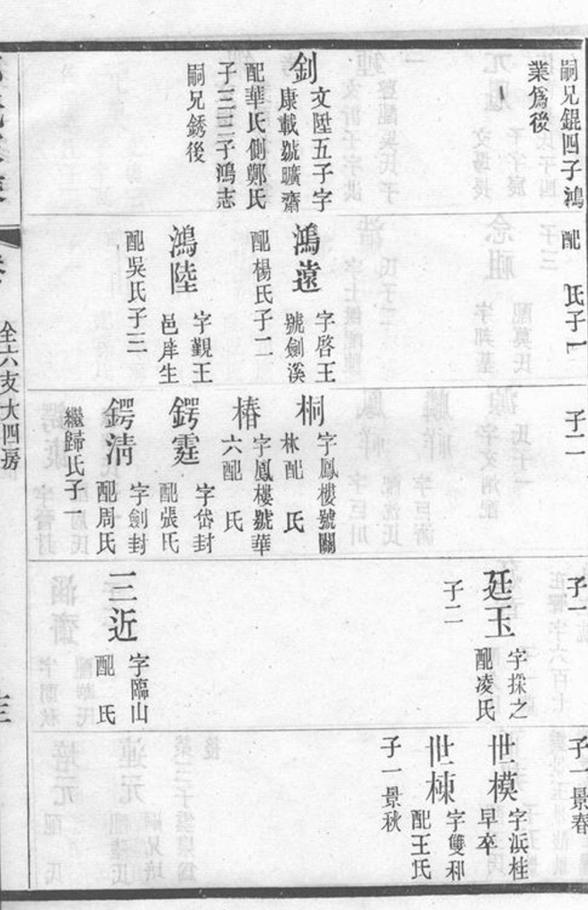 嗣兄錕四子鴻
業爲後
釗
文陞五子字
康載號曠齋
配華氏側鄭氏
子三三子鴻志
嗣兄銹後
配　氏子一
鴻遠
字啓王
號劍溪
配楊氏子二
鴻陸
字覲王
邑庠生
配吳氏子三
子二
桐
字鳳樓號關
林配　氏
椿
字鳳樓號華
六配　氏
鍔霆
字岱封
配張氏
鍔淸
字劍封
配周氏
繼歸氏子一
子一
廷玉
字採之
配凌氏
子二
三近
字臨山
配　氏
子一景春
世模
字浜桂
早卒
世棟
字雙和
配王氏
子一景秋
全六支大四房